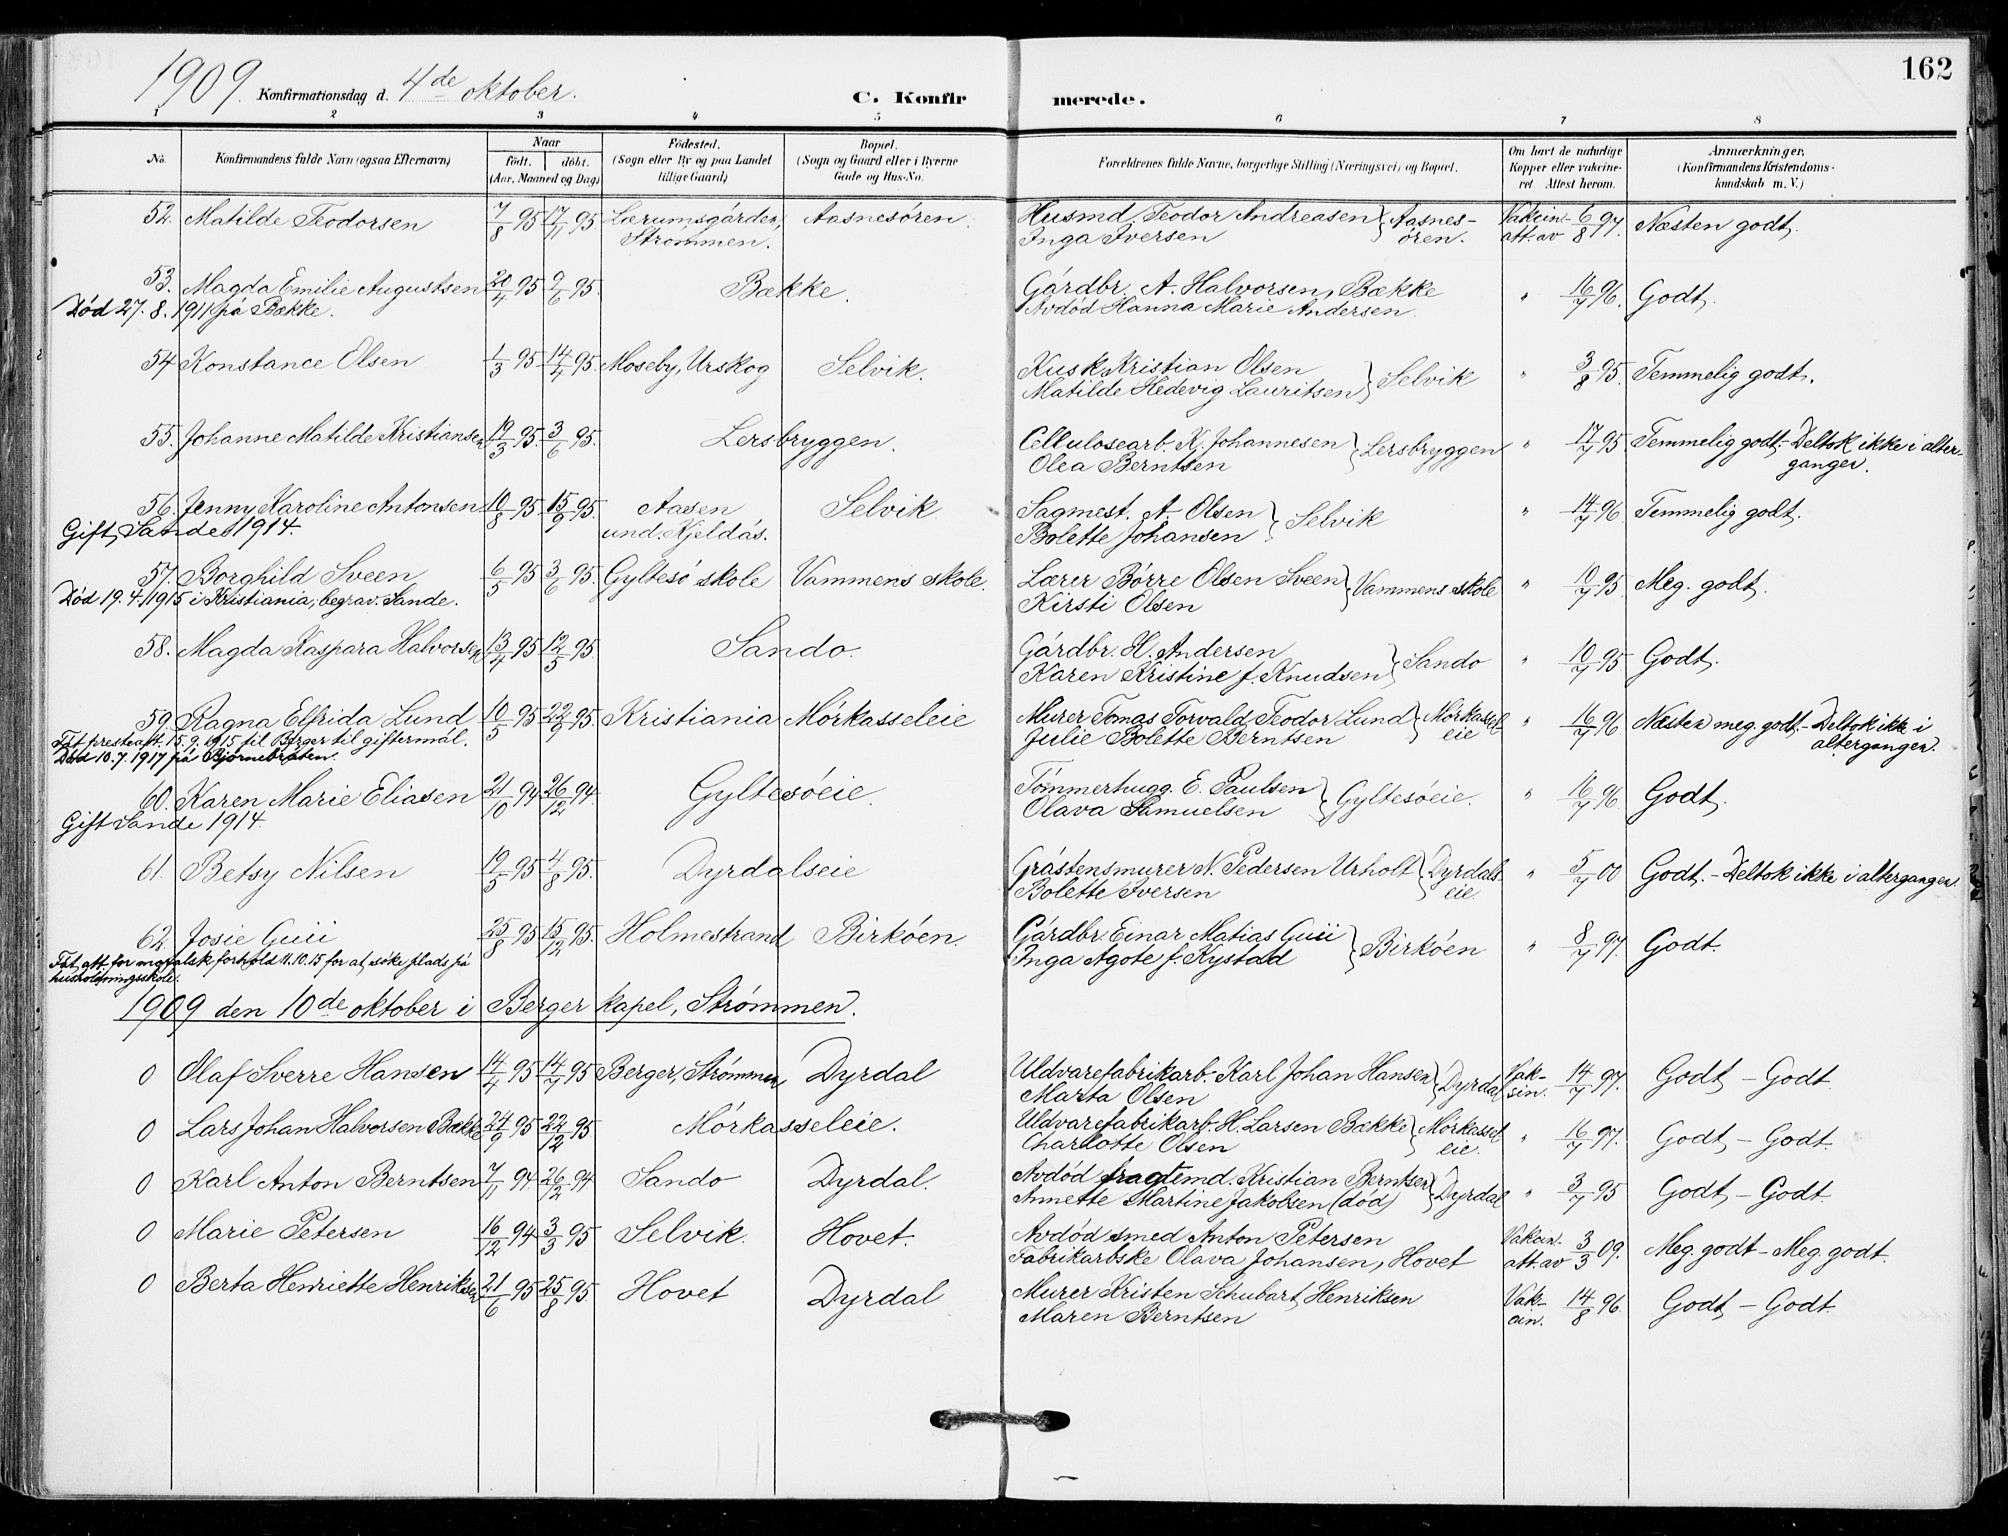 1909. Konfirmationsdag d. 4de oktober. C. Konfirmerede. 162
1 2 3 4 5 6 7 8
No. Konfirmandens fulde Navn (ogsaa Efternavn) Naar født. døbt. (Aar, Maaned og Dag) Fødested. (Sogn eller By og paa Landet tillige Gaard) Bopæl. (Sogn og Gaard eller i Byerne Gade og Hus-No. Forældrenes fulde Navne, borgerlige Stilling (Næringsvei) og Bopæl. Om havt de naturlige Kopper eller vakcineret Attest herom. Anmærkninger. (Konfirmandens Kristendomskundskab m. V.)
52. Matilde Teodorsen 7/8 95 17/11 95 Lærumsgården, Strømmen. Aasnesören. Husmd. Teodor Andreasen Inga Iversen } Aasnesören. Vakcin. att. av 6/8 97. Næsten godt.
53. Magda Emilie Augustsen 20/4 95 9/6 95. Bække. Gårdbr. A. Halvorsen, Bække Avdöd Hanna Marie Andersen. " 16/7 96. Godt.
Död 27.8.1911 på Bække.
54 Konstance Olsen 1/3 95 14/4 95 Moseby, Urskog Selvik. Kusk Kristian Olsen Matilde Hedevig Lauritsen } Selvik " 3/8 95. Temmelig godt.
55. Johanne Matilde Kristiansen 19/3 95 3/6 95. Lersbryggen. Cellulosearb. K. Johannesen Olea Berntsen } Lersbryggen " 17/7 95 Temmelig godt. - Deltok ikke i alterganger.
56. Jenny Karoline Antonsen 10/8 95 15/9 95. Aasen und. Kjeldås. Selvik Sagmest. A. Olsen Bolette Johansen } Selvik " 14/7 96 Temmelig godt.
Gift, Sande 1914.
57. Borghild Sveen 6/5 95 3/6 95. Gyltesö skole Vammens skole. Lærer Börre Olsen Sveen Kirsti Olsen } Vammens skole " 10/7 95 Meg. godt.
Död 19.4.1915 i Kristiania, begrav. Sande.
58. Magda Kaspara Halvorsen 13/4 95 12/5 95. Sando. Gårdbr. H. Andersen Karen Kristine f. Knudsen } Sando " 10/7 95 Godt.
59. Ragna Elfrida Lund 10/5 95 22/9 95. Kristiania Mörkasseleie Murer Tomas Torvald Teodor Lund Julie Bolette Berntsen } Mörkasseleie " 16/7 96 Næsten meg. godt. - Deltok ikke i alterganger.
Fåt presteatt. 15.9.1915 til Berger til giftermål.
Död 10.7.1917 på Bjørnebråten.
60. Karen Marie Eliasen 21/10 94 26/12 94. Gyltesöeie. Tömmerhugg. E. Paulsen Olava Samuelsen } Gyltesöeie. " 16/7 96 Godt.
Gift Sande 1914.
61. Betsy Nilsen 19/5 95 4/8 95. Dyrdalseie Gråstensmurer N. Pedersen Urholt Bolette Iversen } Dyrdalseie. " 5/7 00 Godt. - Deltok ikke i alterganger.
62. Josie Guii 25/8 95 15/12 95. Holmestrand Birköen. Gårdbr. Einar Matias Guii Inga Agote f. Kystad } Birköen " 8/7 97. Godt.
Fåt att. for moralsk forhold 11.10.15 for at söke plads på husholdningsskole.
1909 den 10de oktober i Berger kapel, Strömmen.
0 Olaf Sverre Hansen 14/4 95 14/7 95 Berger, Strömmen Dyrdal Uldvarefabrikarb. Karl Johan Hansen Marta Olsen } Dyrdal Vaksin. 14/7 97. Godt - Godt.
0 Lars Johan Halvorsen Bække 24/9 95 22/12 95 Mörkasseleie. Uldvarefabrikarb. H. Larsen Bække Charlotte Olsen } Mörkasseleie. " 16/7 97. Godt - Godt.
0 Karl Anton Berntsen 7/11 94. 26/12 94 Sando Dyrdal. Avdöd fragtemd. Kristian Berntsen Annette Martine Jakobsen (död) } Dyrdal " 3/7 95 Godt - Godt.
0 Marie Petersen 16/12 94 3/3 95 Selvik. Hovet. Avdöd smed Anton Petersen Fabrikarbske Olava Johansen, Hovet Vakcin. att. av 3/3 09. Meg. godt - Meg. godt.
0 Berta Henriette Henriksen 21/6 95 25/8 95. Hovet Dyrdal Murer Kristen Schubart Henriksen Maren Berntsen Vakcin. 14/8 96. Godt - Godt.